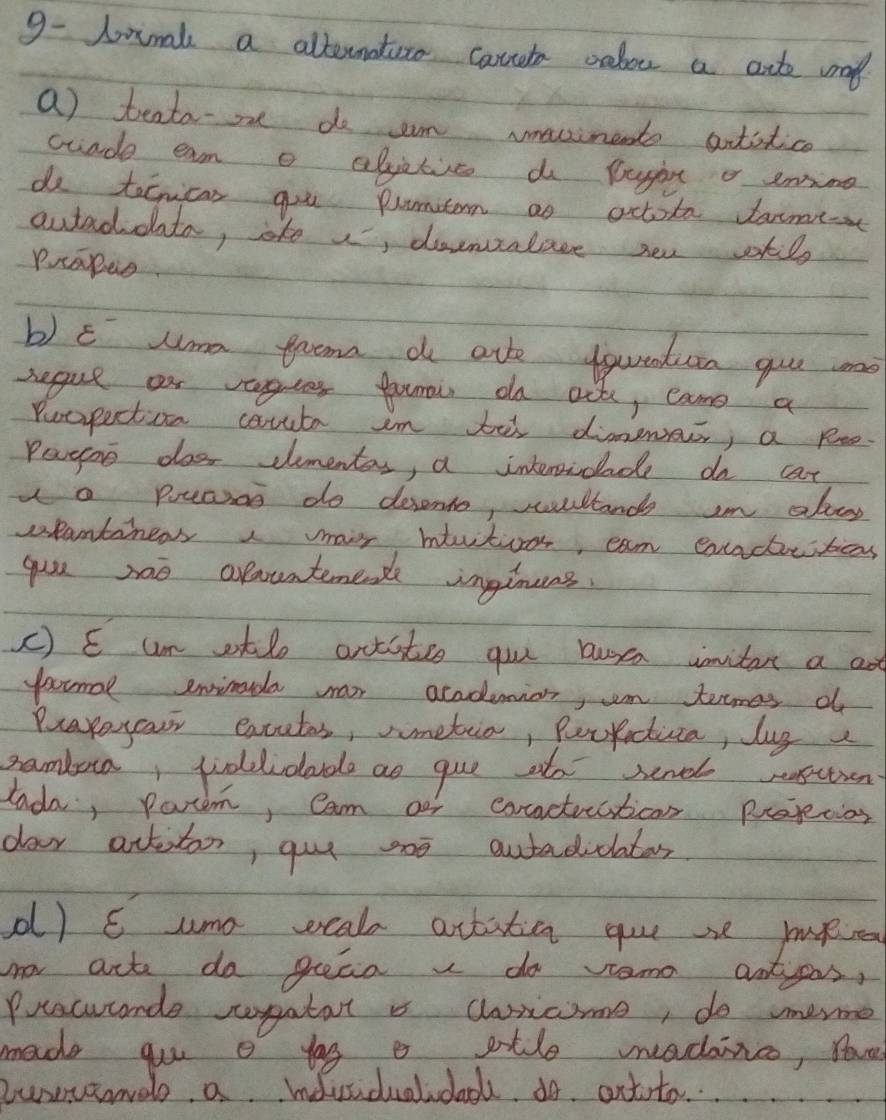 9- Assinale a alternativa correta sobre a arte naif
a) trata-se de um movimento artístico
criado com o objetivo de propor o ensino
de técnicas que permitam ao artista tornar-se
autodidata, isto é, desenvolver seu estilo
próprio.
b) É uma forma de arte figurativa que não
segue as regras formais da arte, como a
Perspectiva correta em três dimensões, a Pro-
Porção dos elementos, a intensidade da cor
e a precisão do desenho, resultando em obras
espontâneas e mais intuitivas, com características
que são aparentemente ingênuas.
c) É um estilo artístico que busca imitar a art
formal ensinada nas academias, em termos de
Proporções corretas, simetria, Perspectiva, luz e
sombra, fidelidade ao que está sendo represen-
tada, porém, com as características próprias
dos artistas, que são autodidatas
d) É uma escola artística que se inspira
na arte da grécia e da roma antigas,
Procurando resgatar o classicismo, do mesmo
modo que o faz o estilo
preservando a individualidade do artista.........